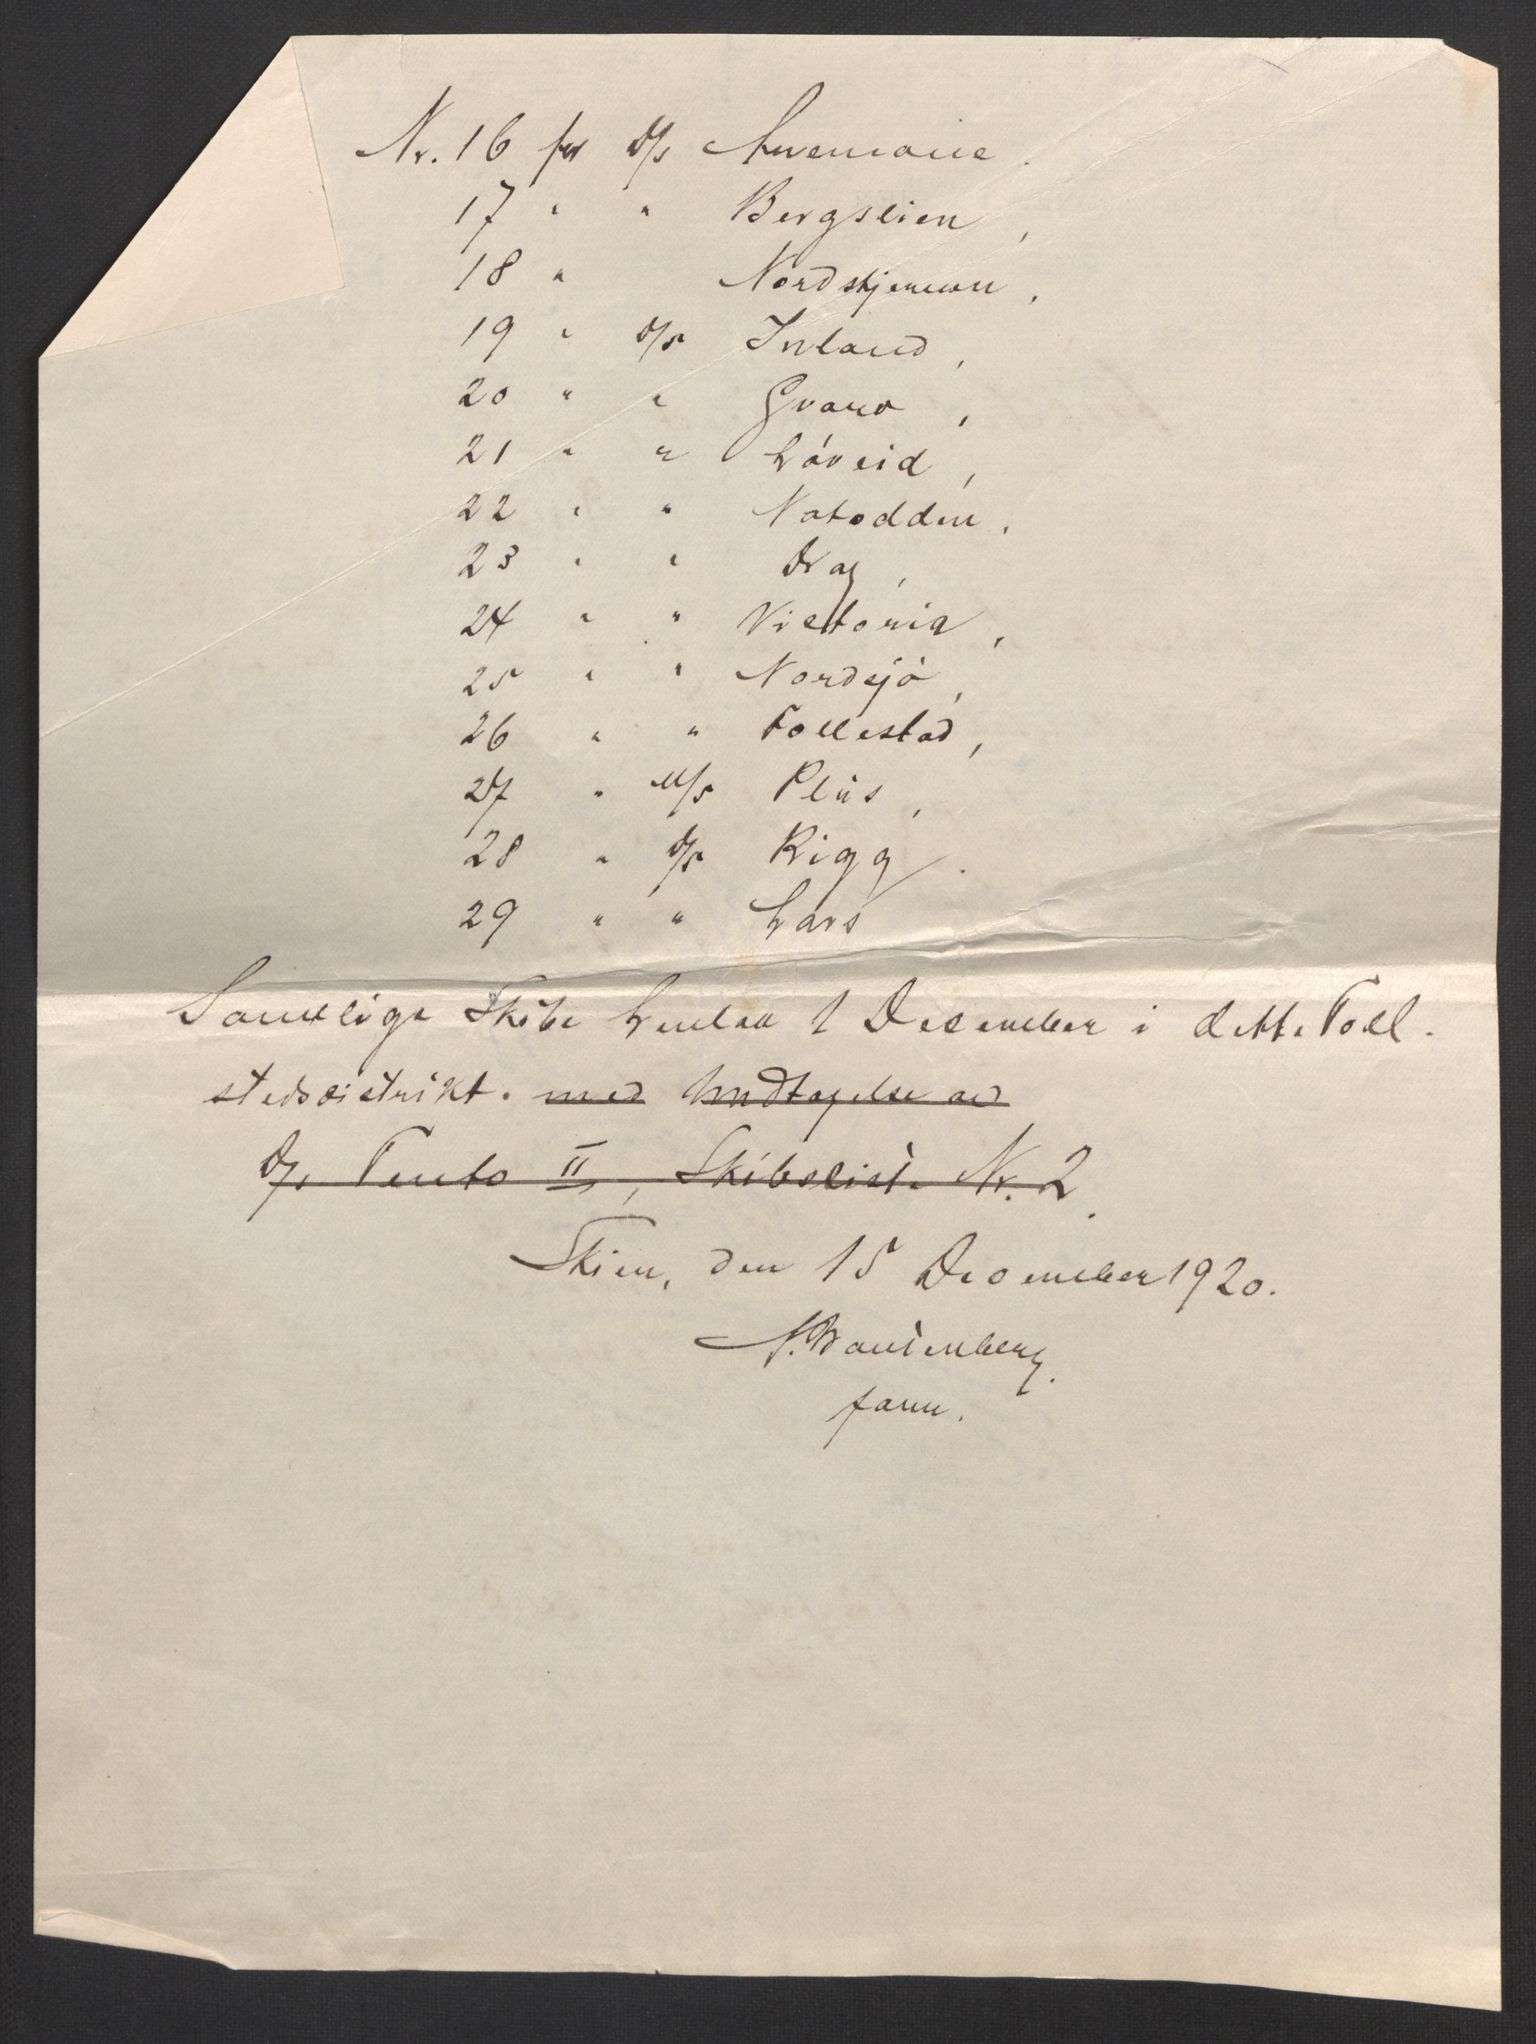 Nr. 16 for D/s Annemarie.
17 " " Bergslien,
18 " Nordstjernen,
19 " D/s Inland,
20 " " Gvarv,
21 " " Løveid,
22 " " Notodden,
23 " " Drag,
24 " " Victoria,
25 " " Nordsjø,
26 " " Follestad,
27 " M/s Plus,
28 " D/s Rigg.
29 " " Lars
Samtlige Skibe henlaa 1 December i dette Told-
stedsdistrikt. med Undtagelse av
D/s Tento II, Skibsliste Nr. 2.
Skien, den 15 December 1920.